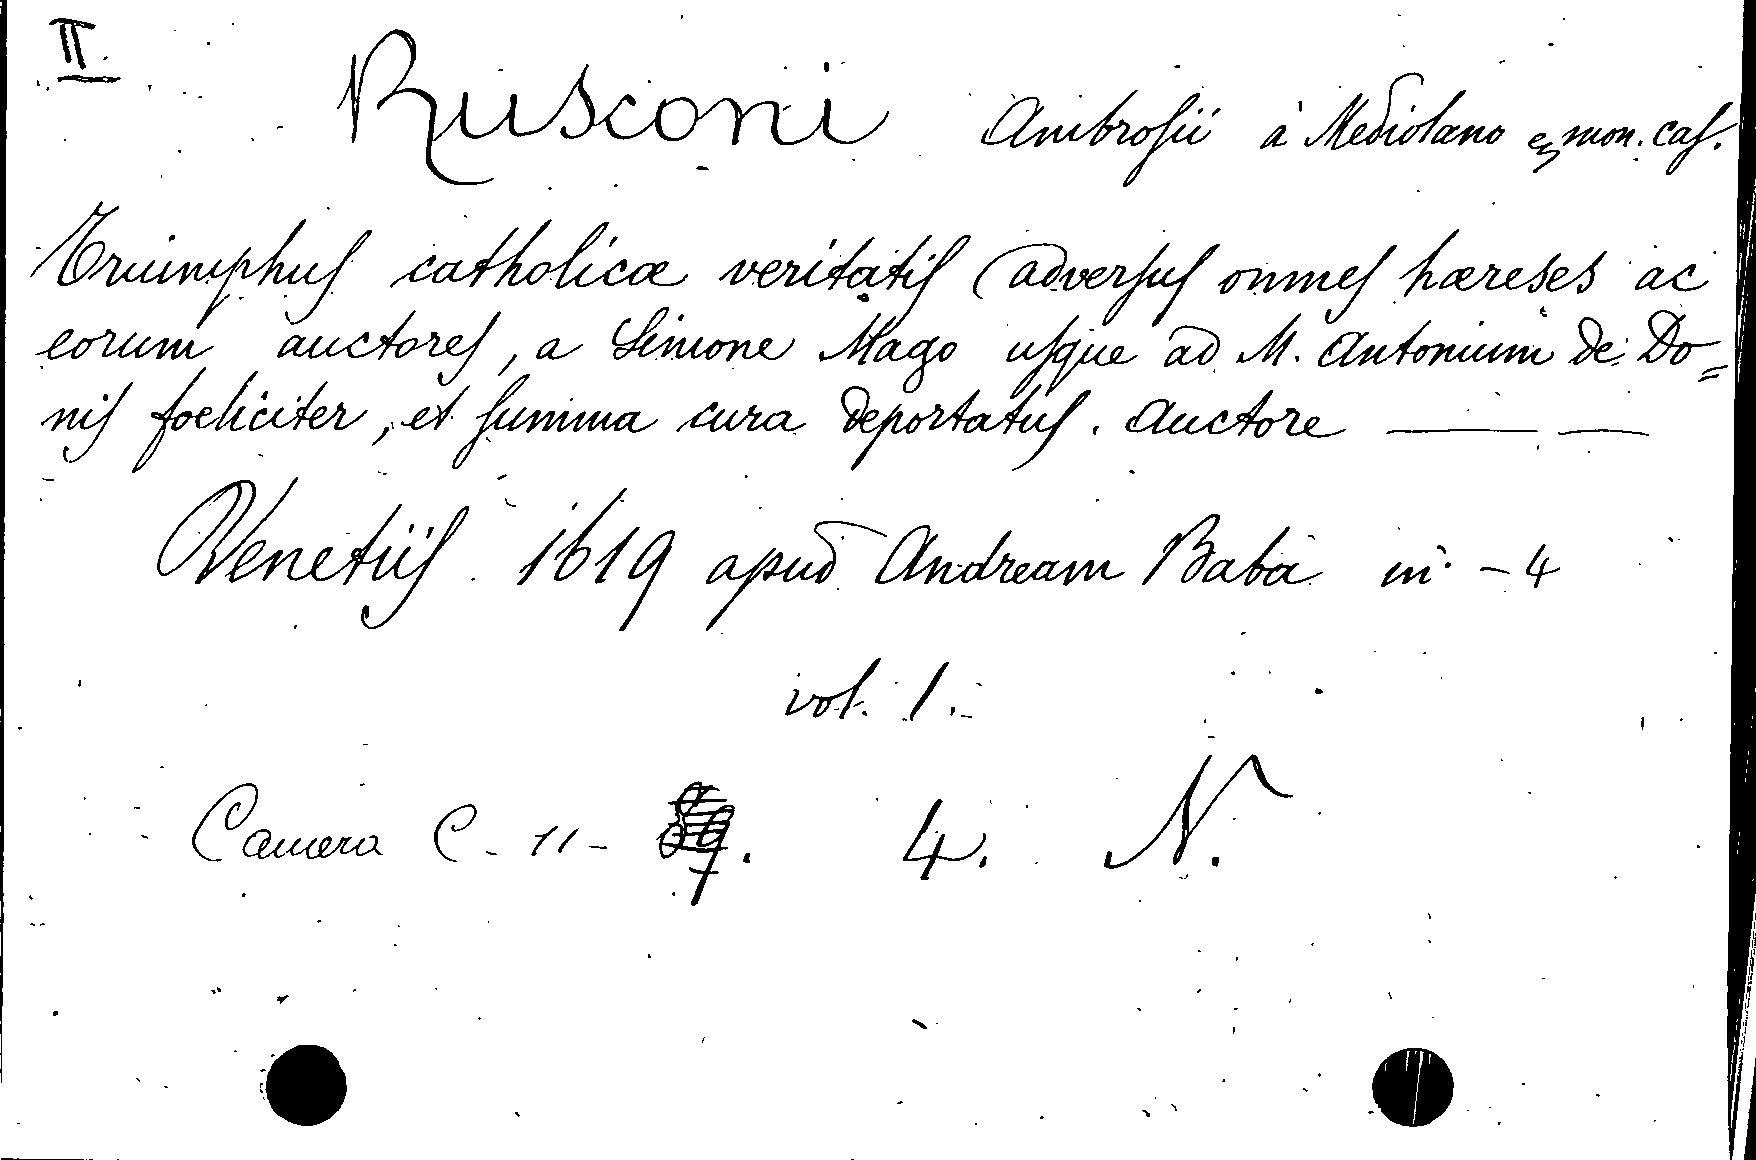 II.
Rusconi Ambrosii à Mediolano ex mon. cas.
Triumphus catholicæ veritatis (adversus omnes hæreses ac
eorum auctores, a Simone Mago usque ad M. Antonium de Do=
nis foeliciter, et summa cura deportatus. Auctore —— —
Venetiis 1619 apud Andream Baba in - 4
vol. 1.
Camera C - 11 - 4. N.